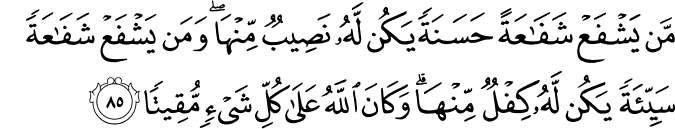 مَّن يَشْفَعْ شَفَـٰعَةً حَسَنَةً يَكُن لَّهُۥ نَصِيبٌ مِّنْهَا ۖ وَمَن يَشْفَعْ شَفَـٰعَةً
سَيِّئَةً يَكُن لَّهُۥ كِفْلٌ مِّنْهَا ۗ وَكَانَ ٱللَّهُ عَلَىٰ كُلِّ شَىْءٍ مُّقِيتًا ٨٥